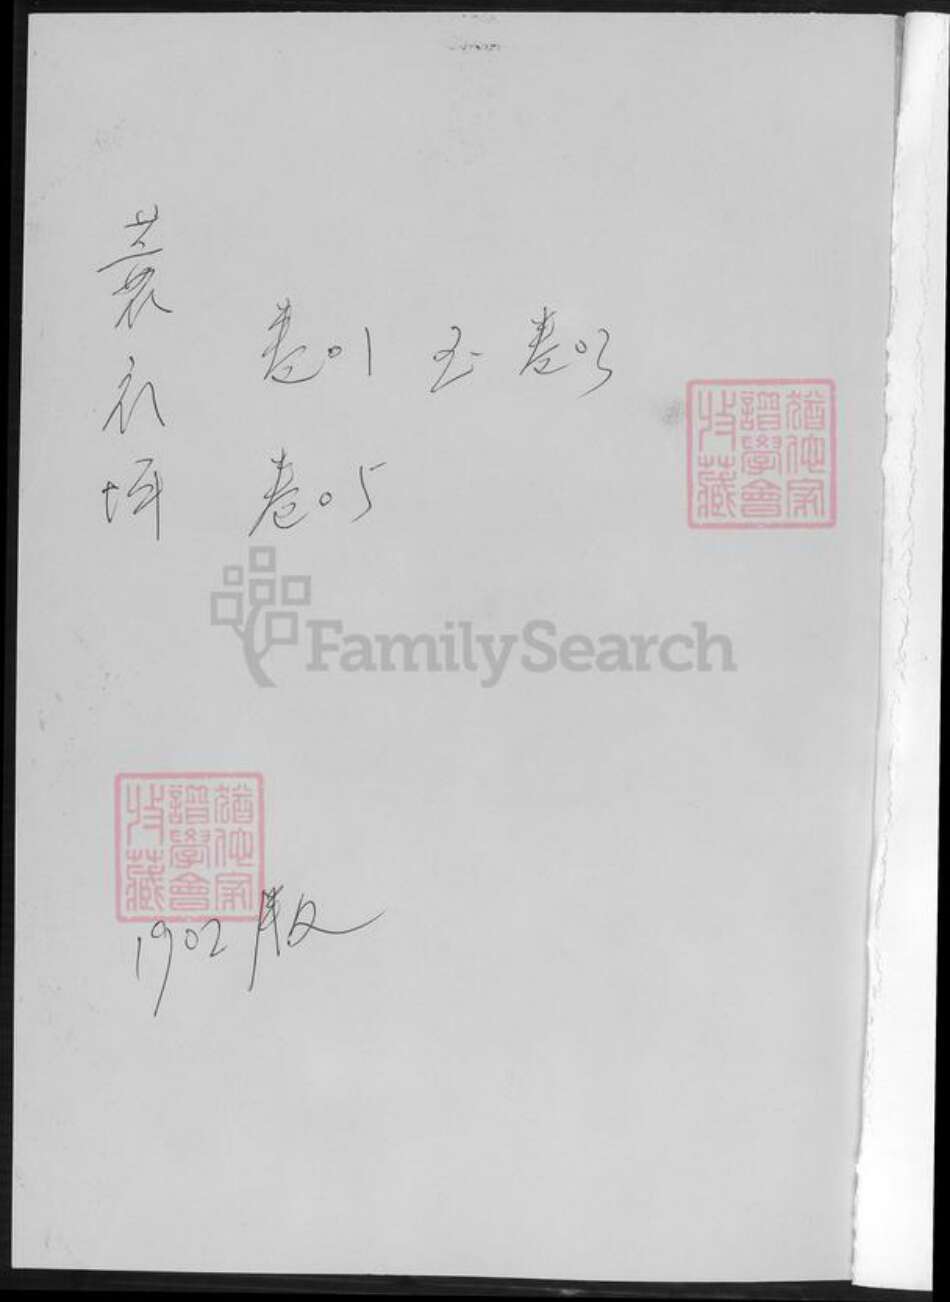 蓑衣坪
卷01 至 卷03
卷05
猶他家
譜學會
收藏
FamilySearch
猶他家
譜學會
收藏
1902版